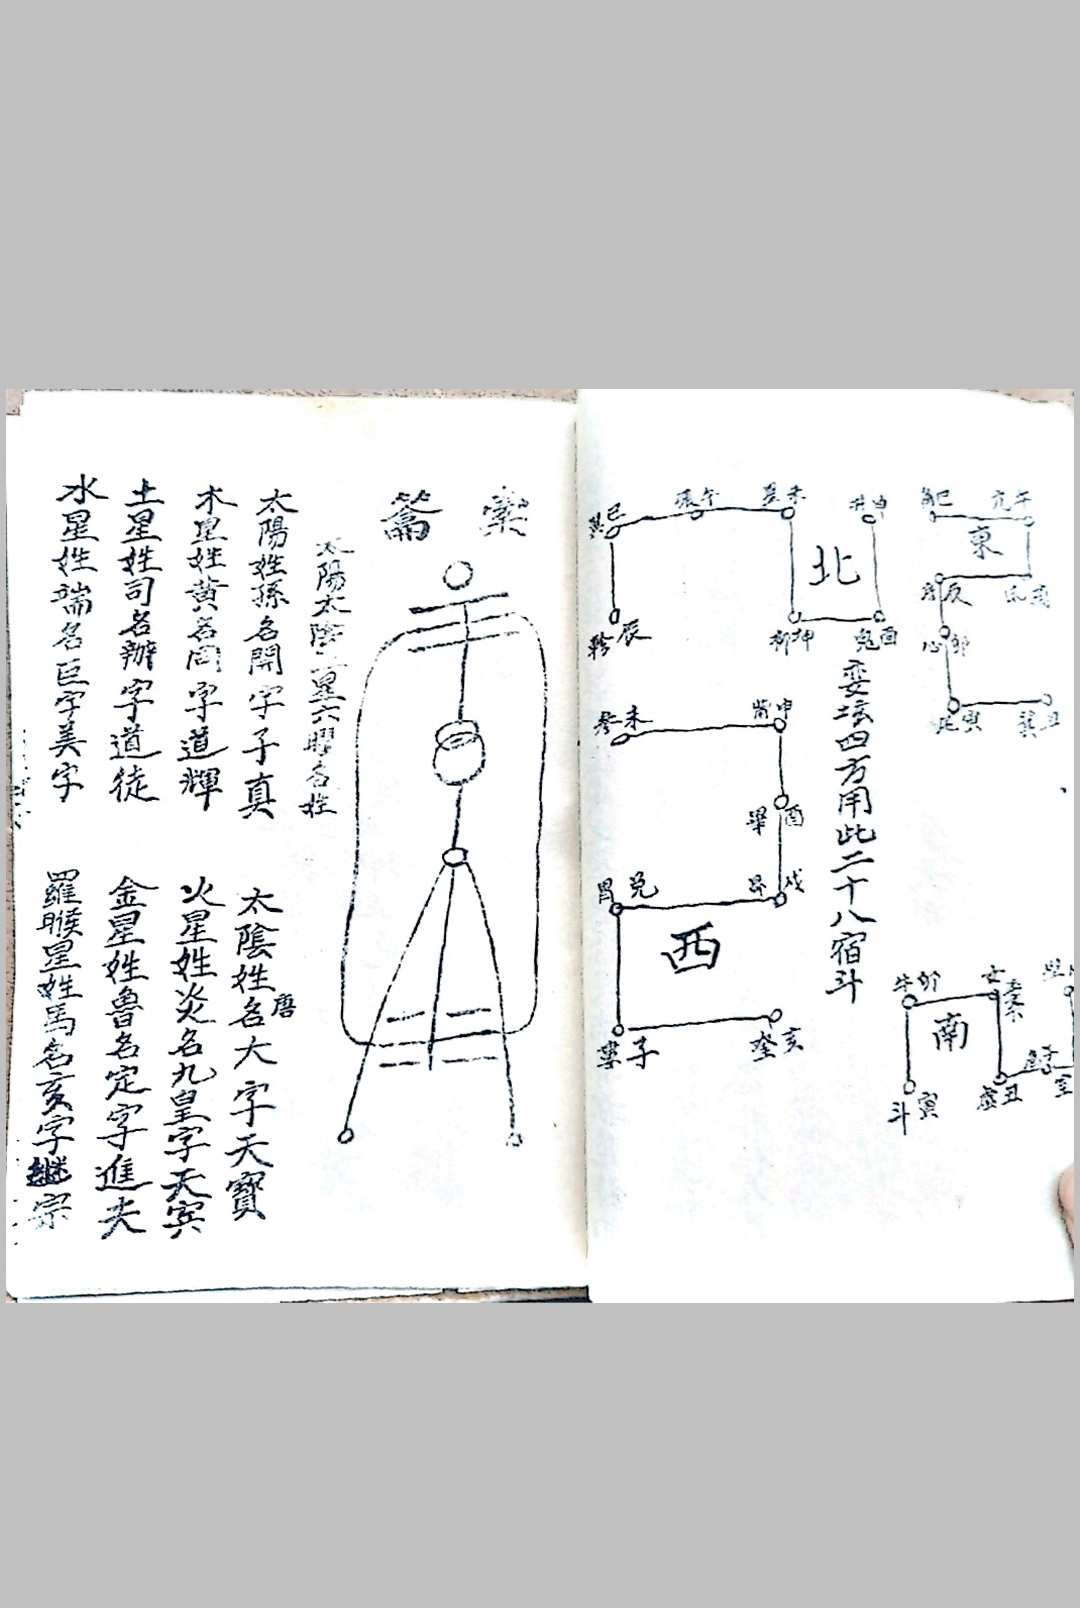 角巳
亢午
東
房辰
心卯
尾寅
箕丑
井申
北
鬼酉
柳坤
星未
張午
翼巳
軫辰
婁壇四方用此二十八宿斗
牛卯
女
南
斗寅
虛丑
觜申
參未
畢酉
昴戌
胃兌
西
婁子
奎亥
太陽太陰二星六曜名姓
太陽姓孫名開字子真
太陰姓唐名大字天寶
木星姓黃名同字道輝
火星姓炎名九皇字天賓
土星姓司名辦字道徒
金星姓魯名定字進夫
水星姓端名巨字美字
羅睺星姓馬名亥字繼宗